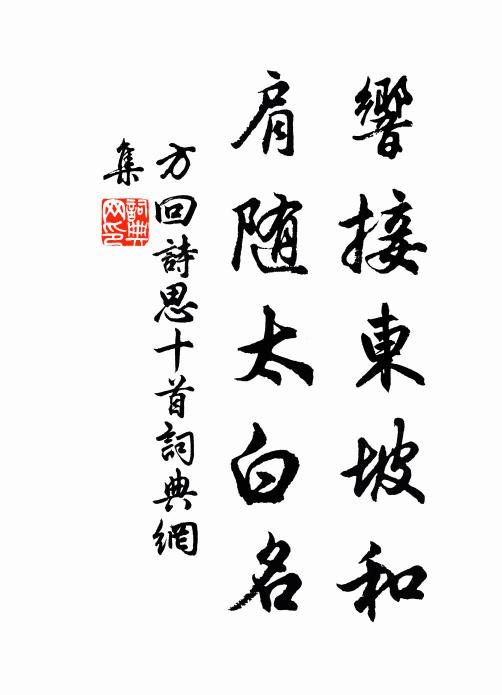 響接東坡和
肩随太白名
方回詩思十首詞典網
集
詞典
网印